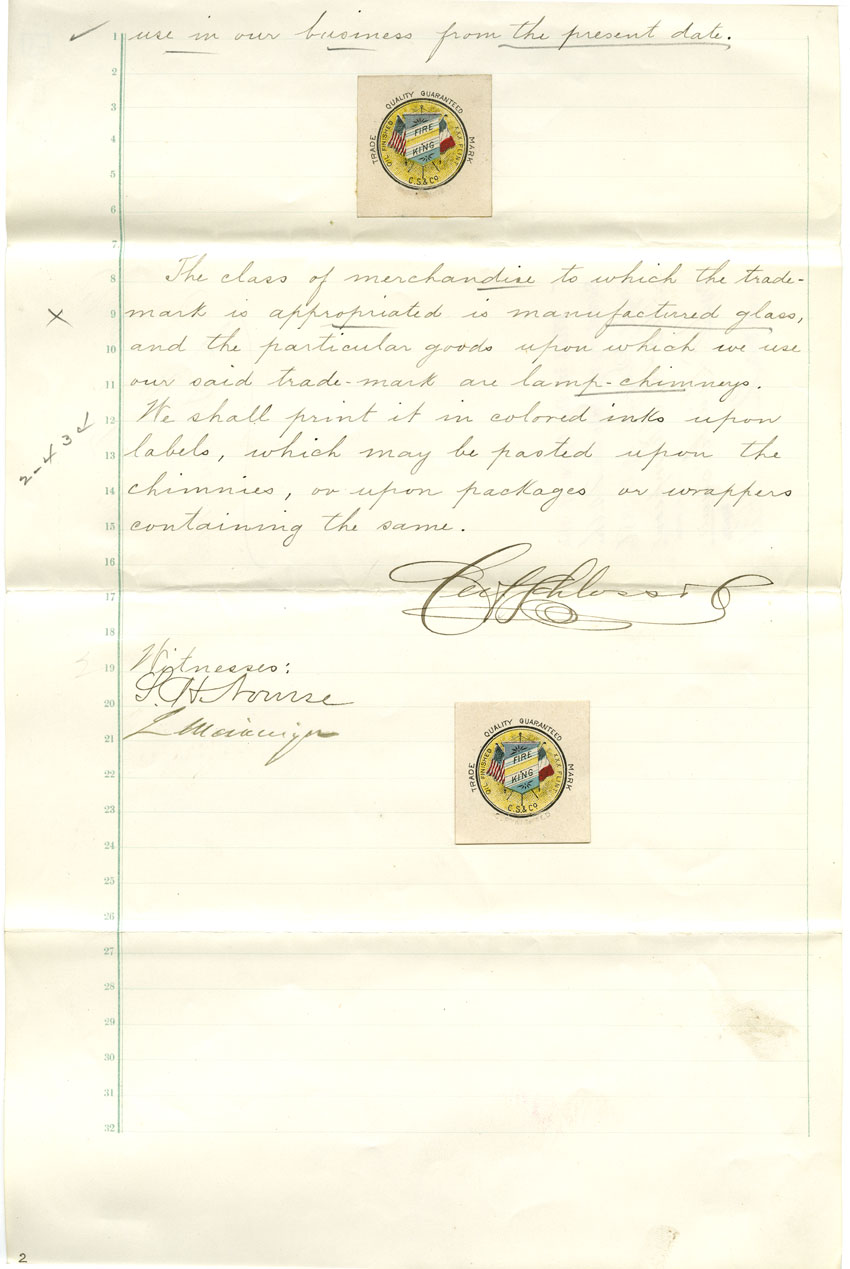 1 use in our business from the present date.
2
3
4
5
6
7
QUALITY GUARANTEED
TRADE MARK
OIL FINISHED
XXX FLINT
FIRE
KING
C.S.&Co
8 The class of merchandise to which the trade-
9 mark is appropriated is manufactured glass,
10 and the particular goods upon which we use
11 our said trade-mark are lamp-chimneys.
12 We shall print it in colored inks upon
13 labels, which may be pasted upon the
14 chimnies, or upon packages or wrappers
15 containing the same.
2-43
16
17
18
19 Witnesses:
20 Nourse
21
22
23
24
25
26
27
28
29
30
31
32
QUALITY GUARANTEED
TRADE MARK
OIL FINISHED
XXX FLINT
FIRE
KING
C.S.&Co
2